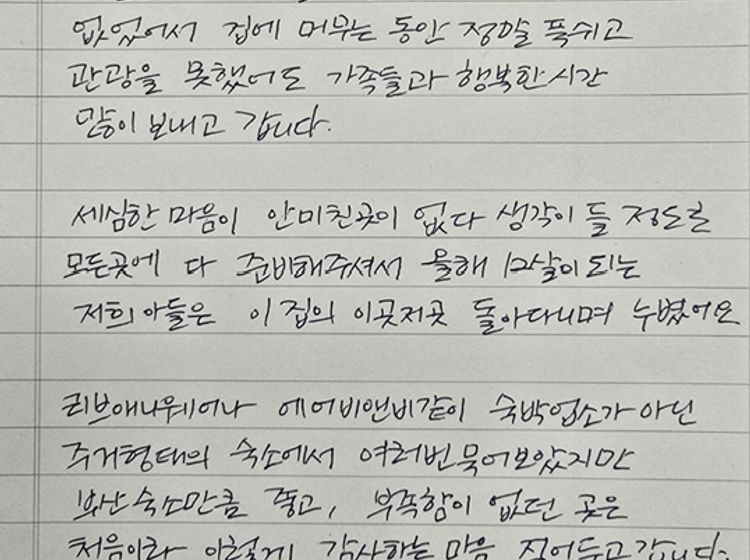 없었어서 집에 머무는 동안 정말 푹쉬고
관광을 못했어도 가족들과 행복한시간
많이 보내고 갑니다.
세심한 마음이 안미친곳이 없다 생각이 들 정도로
모든곳에 다 준비해주셔서 올해 12살이 되는
저희 아들은 이 집의 이곳저곳 돌아다니며 누볐어요
리브애니웨어나 에어비앤비같이 숙박업소가 아닌
주거형태의 숙소에서 여러번 묵어보았지만
부산 숙소만큼 좋고, 부족함이 없던 곳은
처음이라 이렇게 감사하는 마음 적어두고 갑니다.